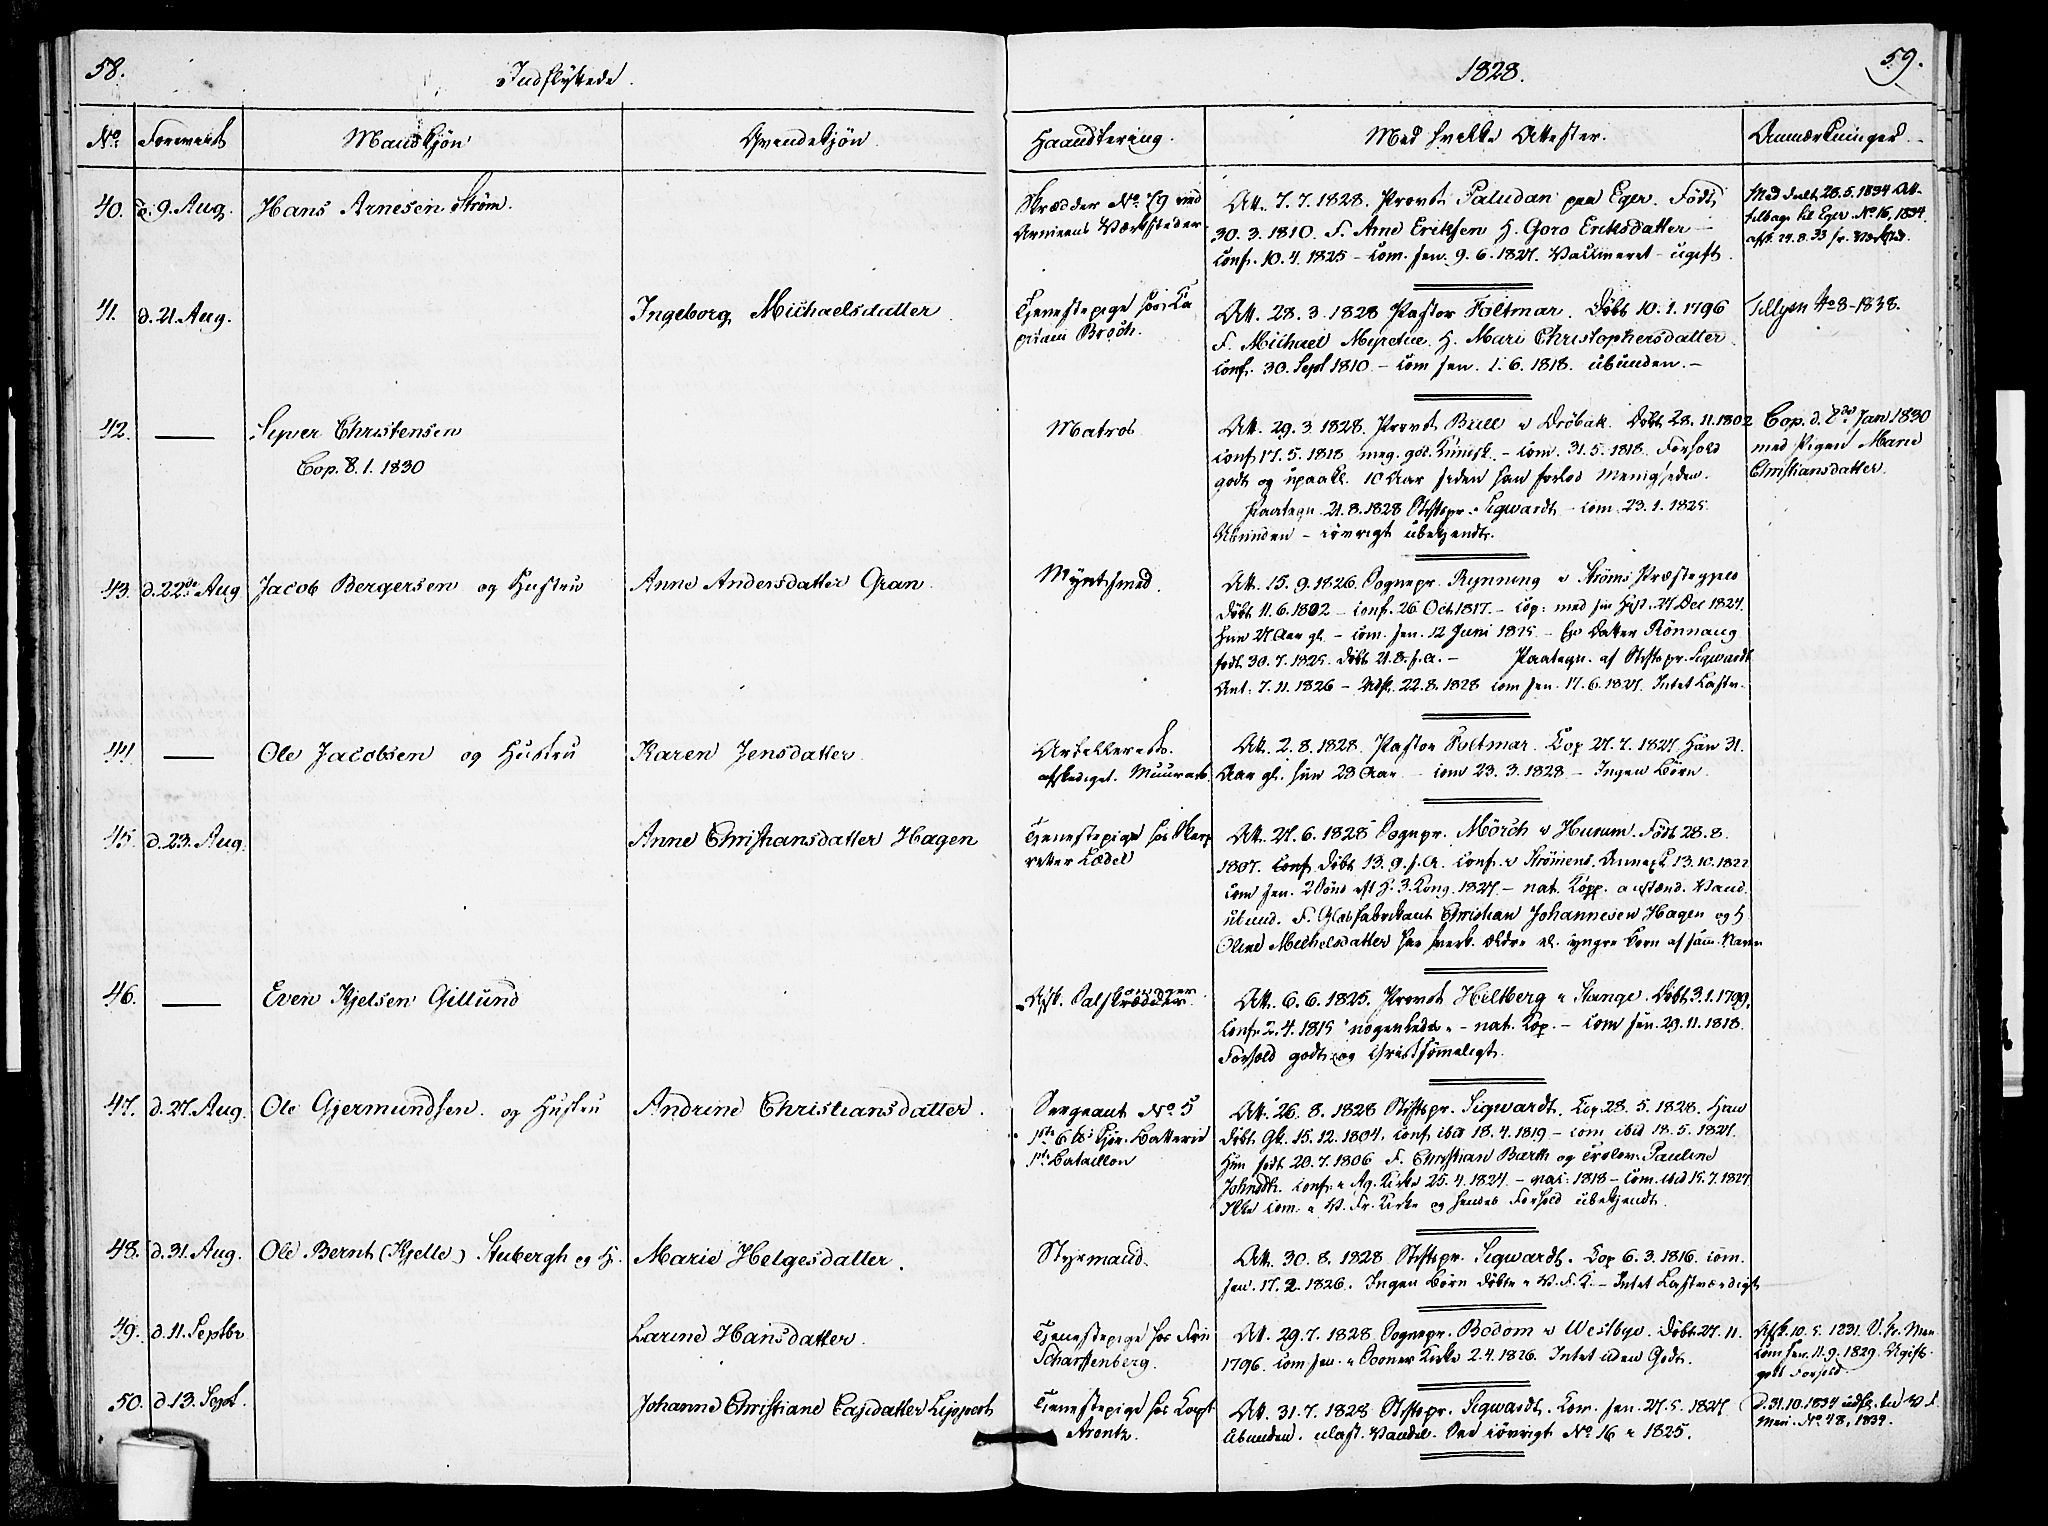 58.
Indflyttede.
1828.
59.
No Foreviist Mandkjøn Qvindekjøn. Haandtering. Med hvilke Attester. Anmærkninger.
40. d. 9. Aug. Hans Arnesen Strøm.
Skrædder No. 79 ved
Armeens Værksteder
Att. 7.7.1828. Provst Paludan paa Eger. Født
30.3.1810. F. Arne Eriksen H. Goro Eriksdatter –
Conf. 10.4.1825 – Com. sen. 9.6.1827. Vaccineret – ugift.
Med Indt. 28.5.1834 Att.
tilbage til Eger No 16, 1834.
41. d. 21. Aug. Ingeborg Michaelsdatter
Tjenestepige hos Ca
pitain Broch.
Att. 28.3.1828 Pastor Foltmar. Døbt 10.1.1796
F. Michael H. Mari Christophersdatter.
Conf. 30. Sept 1810 – Com sen. 1.6.1818. ubunden. –
No 8 – 1838.
42. — Syver Christensen
Cop. 8.1.1830
Matros
Att. 29.3.1828. Provst Bull i Drøbak. Døbt 28.11.1802
Conf 17.5.1818 meg. god Kundsk. – Com. 31.5.1818. Forhold
godt og upaakl. 10 Aar siden han forlod Menigheden.
Paategn. 21.8.1828 Stiftspr. Sigwardt – com. 23.1.1825.
Ubunden – iøvrigt ubekjendt.
Cop. d. 8de Jan 1830
med Pigen Marie
Christiansdatter.
43. d. 22de Aug Jacob Bergersen og Hustru Anne Andersdatter Gran.
Myntsmed.
Att. 15.9.1826. Sognepr. Rynning i Strøms Præstegjeld
Døbt 11.6.1802 – conf. 26 Oct. 1817. – Cop: med sin Hust. 27 Dec 1824.
Hun 27 Aar gl. – com. sen. 12 Juni 1825 – En Datter Rønnaug
født 30.7.1825. døbt 21.8. s.a. – Paategn. af Stiftspr. Sigwardt
Ant: 7.11.1826 – Udfl. 22.8.1828 com sen. 17.6.1827. Intet Lastv.
44. — Ole Jacobsen og Hustru Karen Jensdatter.
Artillerist.
afskediget.
Att. 2.8.1828. Pastor Foltmar. Cop 27.7.1827 Han 31.
Aar gl. hun 28 Aar – com 23.3.1828 – Ingen Børn.
45. d. 23. Aug. Anne Christiansdatter Hagen
Tjenestepige hos Skarp
retter Lædel
Att. 27.6.1828 Sognepr. Mørch i Hurum. Født 28.8.
1807. Conf Døbt 13.9. s.A. conf. i Strømens Annex K. 13.10.1822
com sen. 1827 – nat. Kopp. anstænd. Vand.
ubund. F. Glasfabrikant Christian Johannesen Hagen og H.
Oline Michelsdatter ældre el. yngre Børn af samme Navn
46. — Even Kjelsen Gillund
Afsk.
Att. 6.6.1825. Provst Hiltberg i Stange. Døbt 3.1.1799.
Conf. 2.4.1815 nogenledes – nat. Kop. – com sen. 29.11.1818.
Forhold godt og christsømmeligt.
47. d. 27. Aug. Ole Gjermundsen. og Hustru Andrine Christiansdatter.
Sergeant No. 5
1ste 6 Batterie
1ste Bataillon
Att. 26.8.1828 Stiftspr. Sigwardt. Cop. 28.5.1828. Han
Døbt 15.12.1804. conf. ibid 18.4.1819 – com ibid 18.5.1827.
Hun født 20.7.1806 F. Christian Barth og Pauline
Johnsdtr. conf. i Ag. Kirke 25.4.1824. – vac: 1818 – Com. ibid 15.7.1827.
Ikke com. i V. Fr. Kirke og hendes Forhold ubekjendt.
48. d. 31. Aug. Ole Bernt (Kjelle) Stubergh og H. Marie Helgesdatter.
Styrmand.
Att. 30.8.1828 Stiftspr. Sigwardt. Cop 6.3.1816. com.
sen. 17.2.1826. Ingen Børn døbte i V.F.K. – Intet Lastværdigt
49. d. 11. Septbr Larine Hansdatter.
Tjenestepige hos Fru
Scharffenberg.
Att. 29.7.1828 Sognepr. Bodom i Westbye. Døbt 27.11.
1796. com sen. i Sooner Kirke 2.4.1826. Intet uden Godt.
Afsk. 10.5.1831. V. Fr. Men.
Com sen. 11.9.1829. Ugift.
godt Forhold.
50. d. 13. Sept. Johanne Christiane Casidatter Lippert
Tjenestepige hos Capt
Arentz.
Att. 31.7.1828 Stiftspr. Sigwardt. Com. sen. 27.5.1827
Ubunden. ulast. Vandel. See iøvrigt No. 16 i 1825.
D. 31.10.1834 udfl. til V. F.
Men. No. 48, 1834.